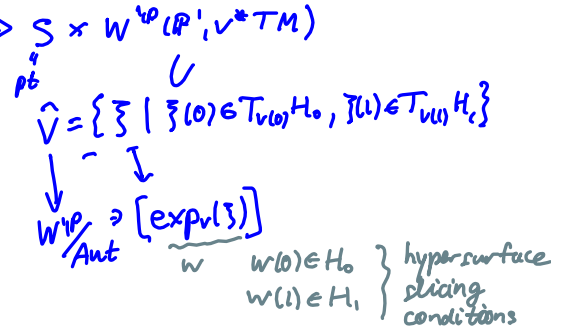 > S × W^{1,p}(ℙ¹, v*TM)
pt
∪
V̂ = { ξ | ξ(0) ∈ T_{v(0)}H₀, ξ(1) ∈ T_{v(1)}H₁ }
W^{1,p}/Aut ∋ [exp_v(ξ)]
w w(0) ∈ H₀ } hypersurface
w(1) ∈ H₁ slicing
conditions